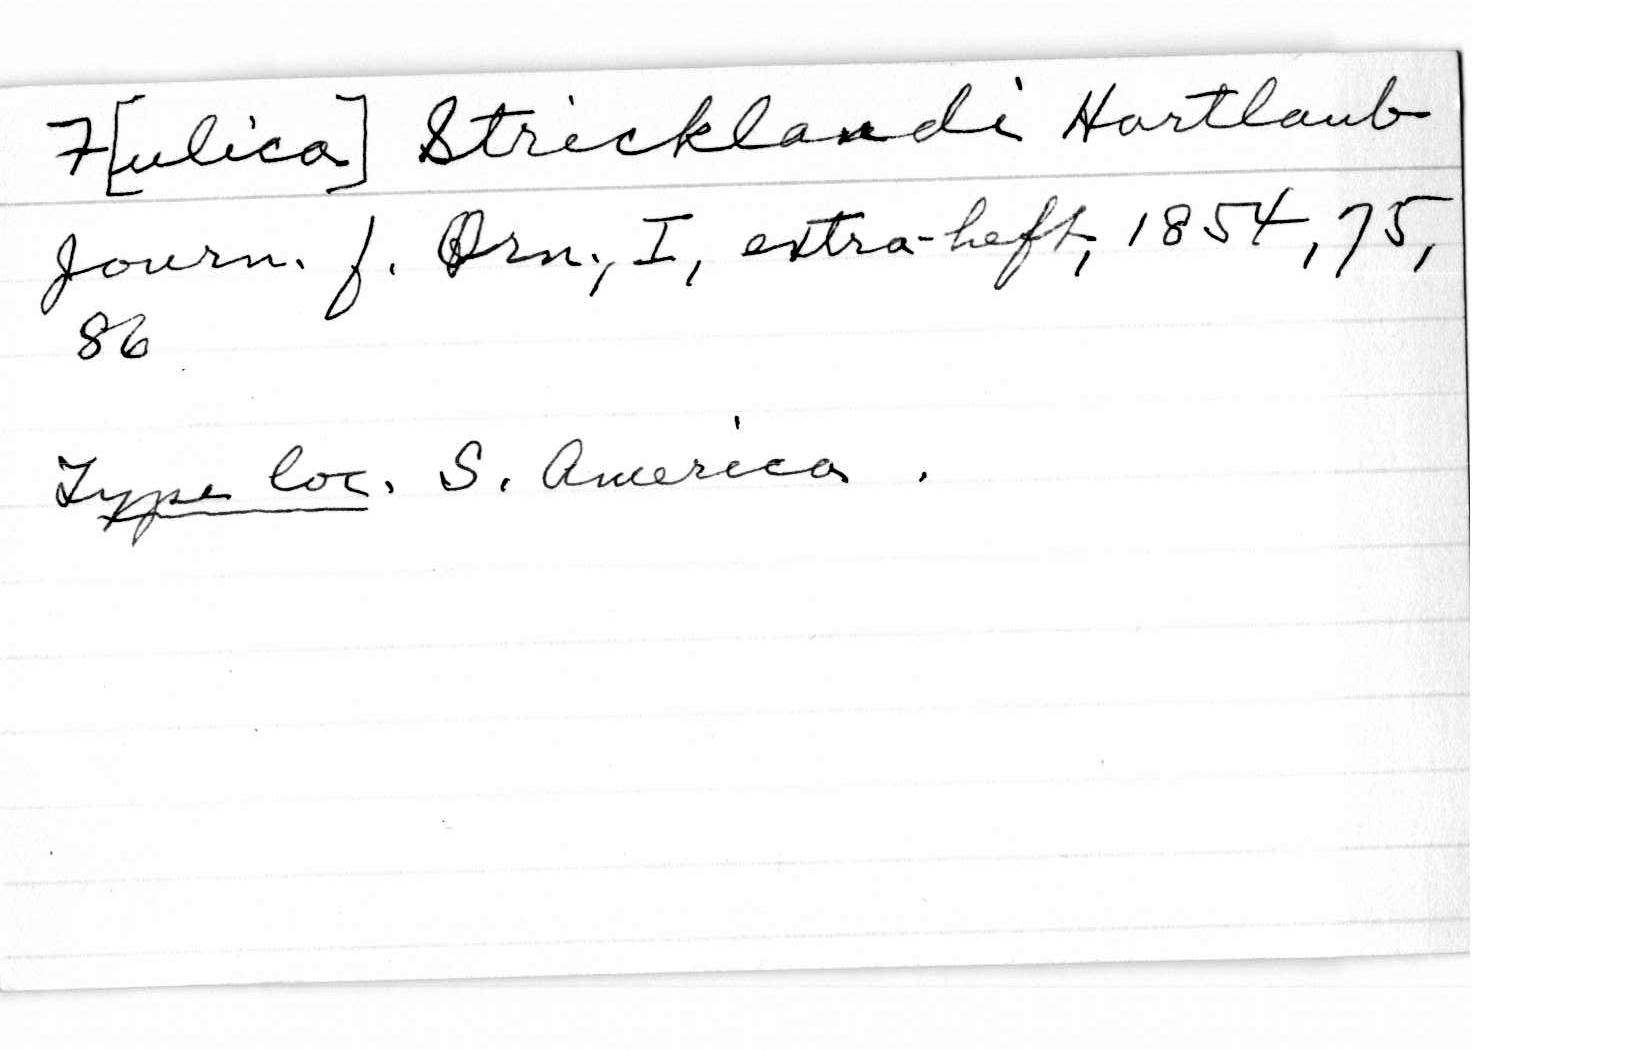 F[ulica] Stricklandi Hartlaub
Journ. f. Orn., I, extra-heft, 1854, 75,
86
Type loc. S. America.